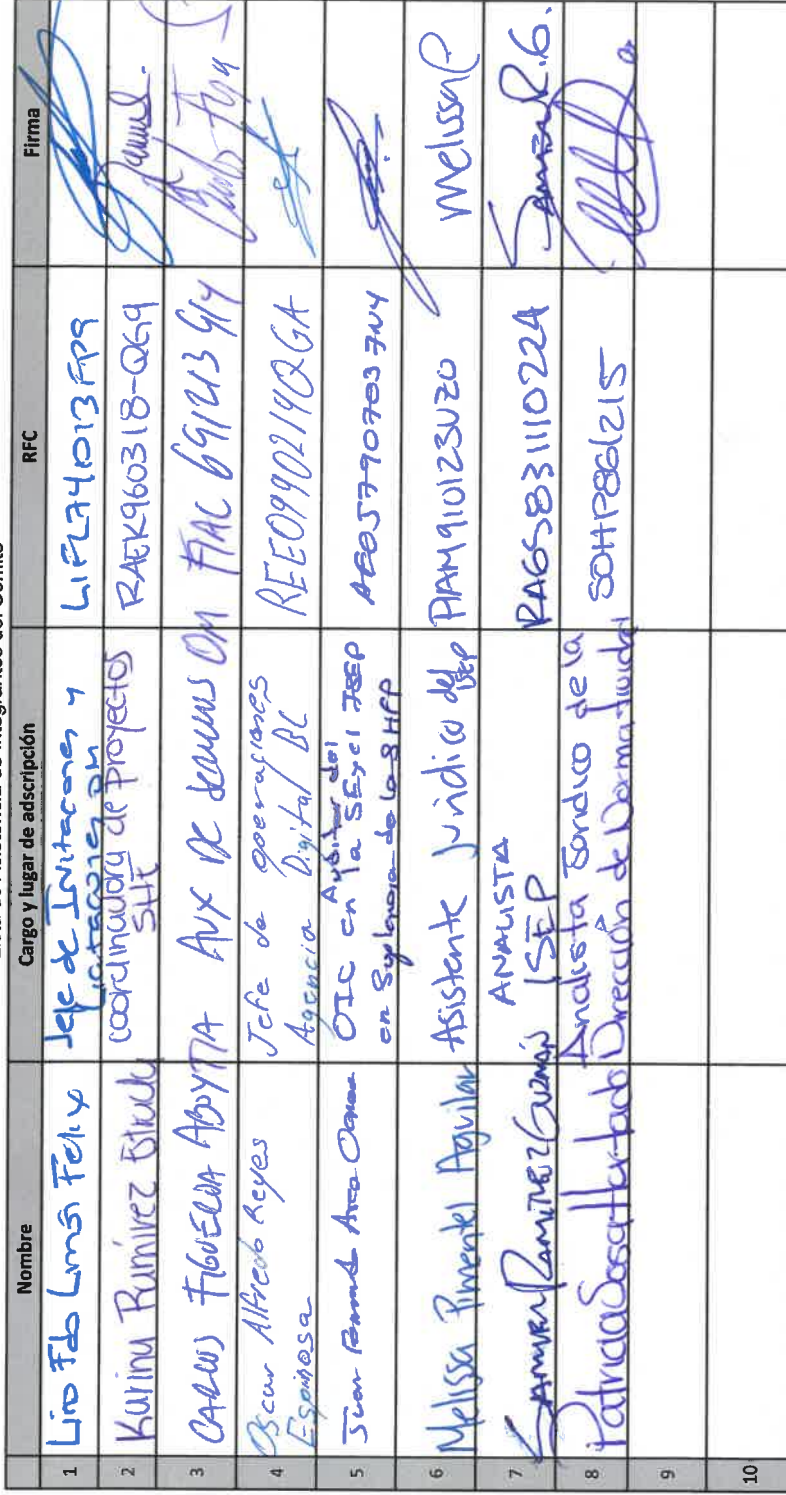 Lista de Asistencia de Integrantes del Comité
Nombre Cargo y lugar de adscripción RFC Firma
1 Lino Fdo Limón Felix Jefe de Invitaciones y
Licitaciones OM LIFL741013FP9
2 Karina Ramírez coordinadora de proyectos
SHE RAEK960318-QG9
3 CARLOS FIGUEROA ABOYTIA AUX DE OM FIAC 691213
4 Oscar Alfredo Reyes
Espinosa Jefe de operaciones
Agencia Digital BC REEO990214QGA
5 Juan Arce Auditor del
OIC en la SE y el ISEP
en Suplencia de la SHFP AEOJ7907037N4
6 Melissa Pimentel Aguilar Asistente jurídico del ISEP PIAM910123UZ0 MelissaP
7 SAMUEL RAMÍREZ GUZMÁN ANALISTA
ISEP RAGS831110224 Samuel R.G.
8 Patricia Sosa Hurtado Analista Jurídico de la
Dirección de Normatividad SOHP861215
9
10